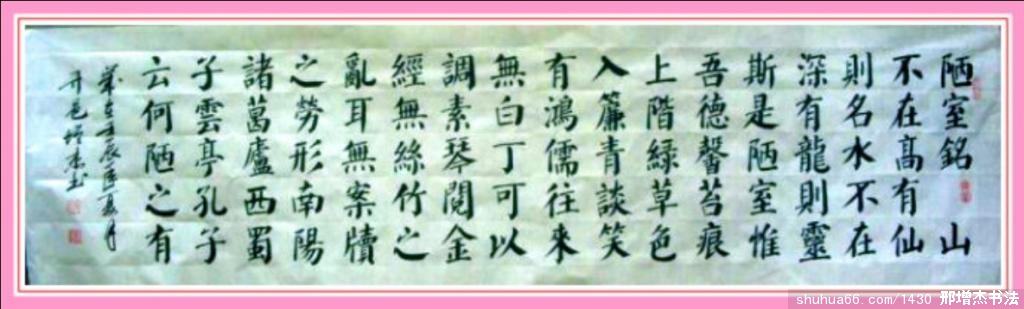 陋室銘 山
不在髙有仙
則名水不在
深有龍則靈
斯是陋室惟
吾德馨苔痕
上階緑草色
入簾青談笑
有鴻儒往来
無白丁可以
調素琴閲金
經無絲竹之
亂耳無案牘
之勞形南陽
諸葛廬西蜀
子雲亭孔子
云何陋之有
歲在壬辰夏月
增杰書
shuhua66.com/1430 邢增杰书法